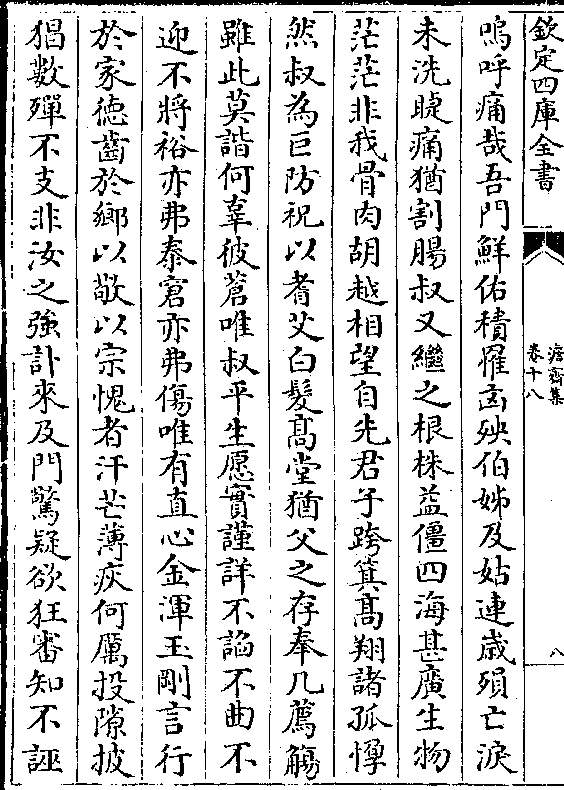 欽定四庫全書
澹齋集
卷十八
八
嗚呼痛哉吾門鮮佑積罹凶殃伯姊及姑連歲殞亡淚
未洗睫痛猶割腸叔又繼之根株益僵四海甚廣生物
茫茫非我骨肉胡越相望自先君子跨箕髙翔諸孤惸
然叔為巨防祝以耆艾白髮髙堂猶父之存奉几薦觴
雖此莫諧何辜彼蒼唯叔平生愿實謹詳不諂不曲不
迎不將裕亦弗泰窘亦弗傷唯有直心金渾玉剛言行
於家徳齒於鄉以敬以宗愧者汗芒薄疢何厲投隙披
猖數殫不支非汝之強訃來及門驚疑欲狂審知不誣